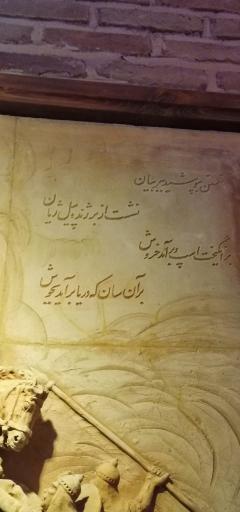 تهمتن بپوشید ببر بیان
نشست از بر ژنده پیل ژیان
برانگیخت اسپ و برآمد خروش
برآن سان که دریا برآید بجوش